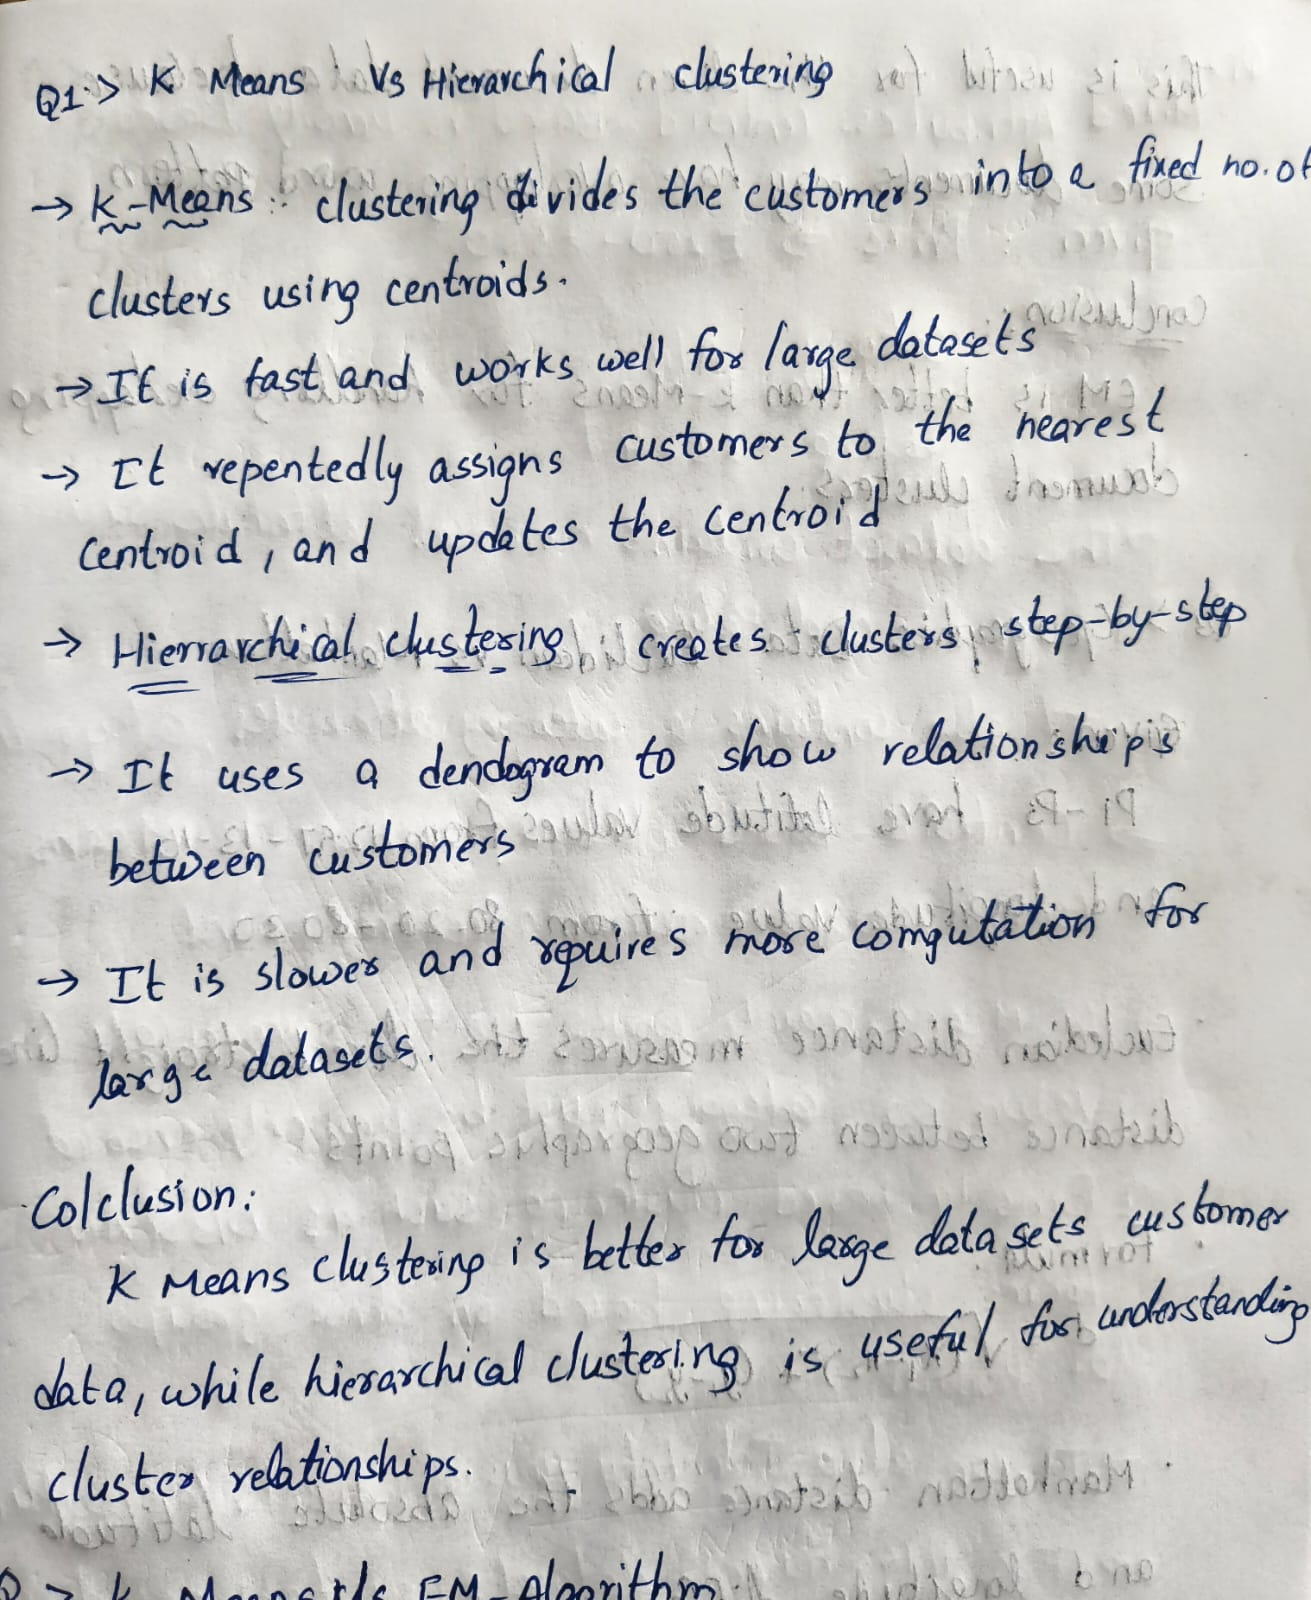 Q1:> K Means Vs Hierarchical clustering
→ K-Means: clustering divides the customers into a fixed no. of
clusters using centroids.
→ It is fast and works well for large datasets
→ It repentedly assigns customers to the nearest
centroid, and updates the centroid
→ Hierrarchical clustering creates clusters step-by-step
→ It uses a dendogram to show relationships
between customers
→ It is slower and requires more computation for
large datasets.
Colclusion:
K Means clustering is better for large data sets customer
data, while hierarchical clustering is useful for understanding
cluster relationships.
EM-Algorithm